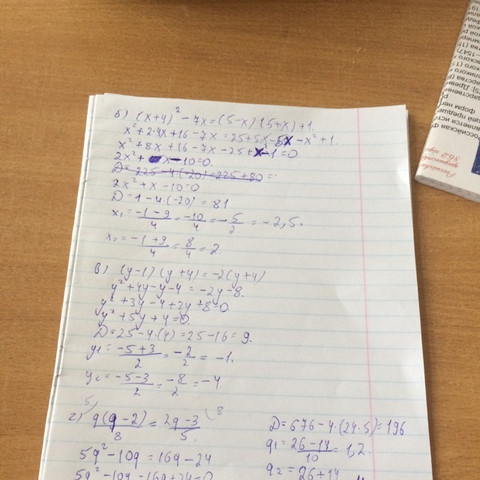 б) (x+4)² - 7x = (5-x)(5+x)+1.
x²+2·4x+16-7x = 25+5x-5x-x²+1.
x²+8x+16-7x-25+x²-1=0
2x²+x-10=0.
D=225-4·(-20)=225+80=
2x²+x-10=0
D=1-4·(-20)=81
x₁=(-1-9)/4=-10/4=-5/2=-2,5.
x₂=(-1+9)/4=8/4=2
в) (y-1)(y+4)=-2(y+4)
y²+4y-y-4=-2y-8.
y²+3y-4+2y+8=0.
y²+5y+4=0.
D=25-4·(4)=25-16=9.
y₁=(-5+3)/2=-2/2=-1.
y₂=(-5-3)/2=-8/2=-4
г) 5/ q(q-2)/8=2q-3/5 \8
5q²-10q=16q-24
5q²-10q-16q+24=0
D=676-4·(24·5)=196
q₁=(26-14)/10=1,2.
q₂=26+14